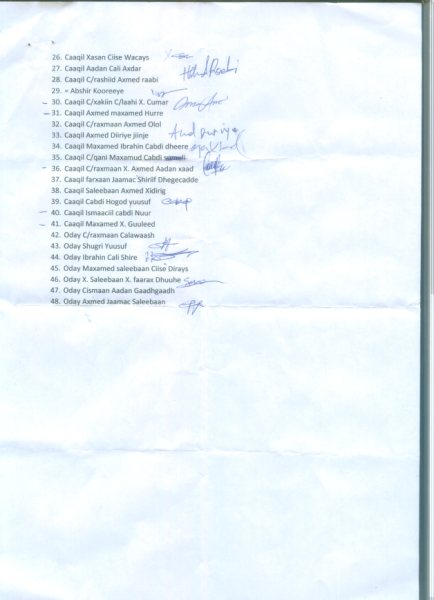 26. Caaqil Xasan Ciise Wacays
27. Caaqil Aadan Cali Axdar
28. Caaqil C/rashiid Axmed raabi
29. = Abshir Kooreeye
30. Caaqil C/xakiin C/laahi X. Cumar
31. Caaqil Axmed maxamed Hurre
32. Caaqil C/raxmaan Axmed Olol
33. Caaqil Axmed Diiriye jiinje
34. Caaqil Maxamed Ibrahin Cabdi dheere
35. Caaqil C/qani Maxamud Cabdi
36. Caaqil C/raxmaan X. Axmed Aadan xaad
37. Caaqil farxaan Jaamac Shiriif Dhegecadde
38. Caaqil Saleebaan Axmed Xidirig
39. Caaqil Cabdi Hogod yuusuf
40. Caaqil Ismaaciil cabdi Nuur
41. Caaqil Maxamed X. Guuleed
42. Oday C/raxmaan Calawaash
43. Oday Shugri Yuusuf
44. Oday Ibrahin Cali Shire
45. Oday Maxamed saleebaan Ciise Dirays
46. Oday X. Saleebaan X. faarax Dhuuhe
47. Oday Cismaan Aadan Gaadhgaadh
48. Oday Axmed Jaamac Saleebaan